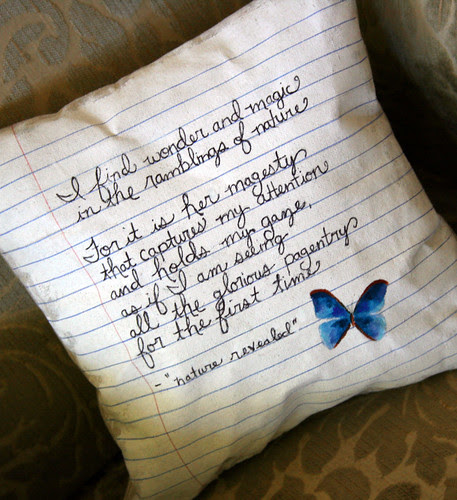 I find wonder and magic
in the ramblings of nature
For it is her magesty
that captures my attention
and holds my gaze,
as if I am seeing
all the glorious pagentry
for the first time
- "nature revealed"